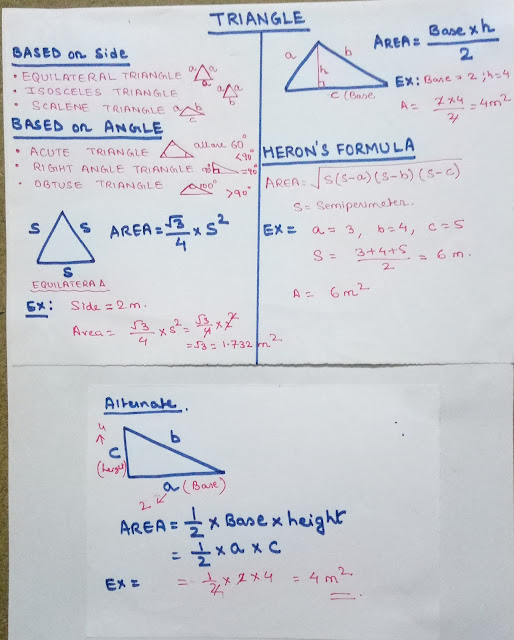 TRIANGLE
BASED on Side
• EQUILATERAL TRIANGLE a a a
• ISOSCELES TRIANGLE a a b
• SCALENE TRIANGLE a b c
BASED on ANGLE
• ACUTE TRIANGLE all are 60° <90°
• RIGHT ANGLE TRIANGLE 90° =90°
• OBTUSE TRIANGLE 100° >90°
S S S
EQUILATERA Δ
AREA = √3/4 × S²
EX: Side = 2m.
Area = √3/4 × S² = √3/4 × 2²
= √3 = 1.732 m²
a b h
c (Base
AREA = Base × h / 2
EX: Base = 2 ; h = 4
A = 2×4/2 = 4m²
HERON'S FORMULA
AREA = √S(S-a)(S-b)(S-c)
S = Semiperimeter.
EX = a = 3, b = 4, c = 5
S = 3+4+5/2 = 6 m.
A = 6 m²
Alternate.
4
c b
(height)
a (Base)
2
AREA = 1/2 × Base × height
= 1/2 × a × c
EX = = 1/2 × 2 × 4 = 4 m²